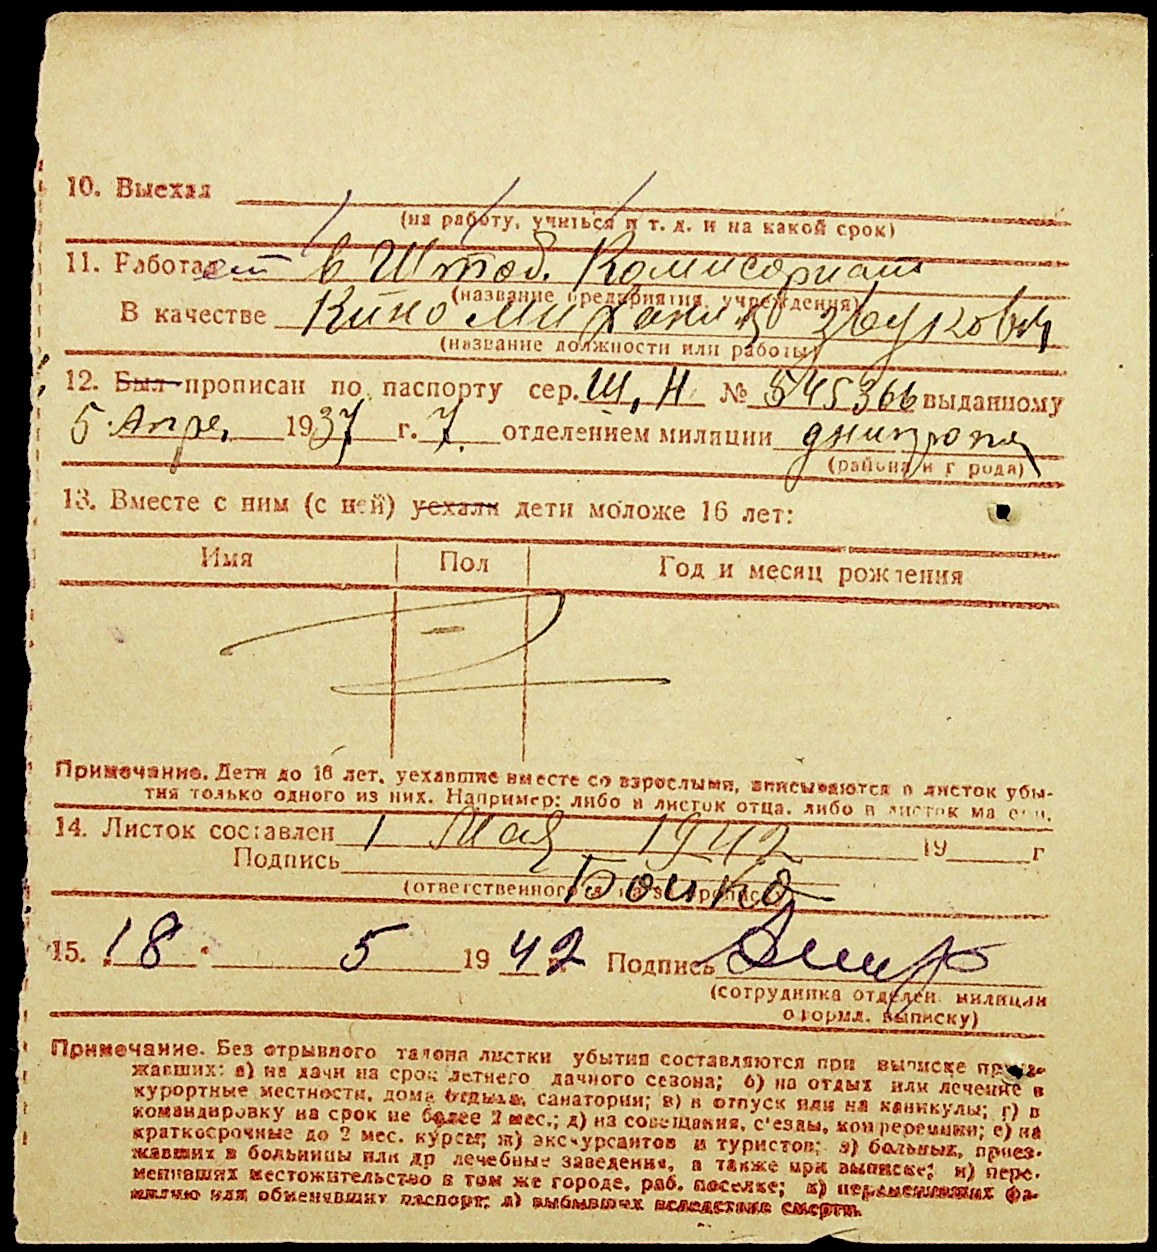 10. Выехал
(на работу, учиться и т. д. и на какой срок)
11. Работает в Штаб. Комисариат
(название предприятия, учреждения)
В качестве Кино миханик звуковик
(название должности или работы)
12. Был прописан по паспорту сер. Ш. Н № 545366 выданному
5 Апре. 1937 г. 7. отделением милиции
(района и города)
13. Вместе с ним (с ней) уехали дети моложе 16 лет:
Имя Пол Год и месяц рождения
—
Примечание. Дети до 16 лет, уехавшие вместе со взрослыми, вписываются в листок убы-
тия только одного из них. Например: либо в листок отца, либо в листок матери.
14. Листок составлен 1 Мая 1942 19 г
Подпись Бойко
(ответственного за прописку)
15. 18 5 1942 г. Подпись
(сотрудника отделен. милиции
оформл. выписку)
Примечание. Без отрывного талона листки убытия составляются при выписке приез-
жавших: а) на дачи на срок летнего дачного сезона; б) на отдых или лечение в
курортные местности, дома отдыха, санатории; в) в отпуск или на каникулы; г) в
командировку на срок не более 2 мес.; д) на совещания, с'езды, конференции; е) на
краткосрочные до 2 мес. курсы; ж) экскурсантов и туристов; з) больных, приез-
жавших в больницы или др лечебные заведения, а также при выписке; и) пере-
менивших местожительство в том же городе, раб. поселке; к) переменивших фа-
милию или обменявших паспорт; л) выбывших вследствие смерти.